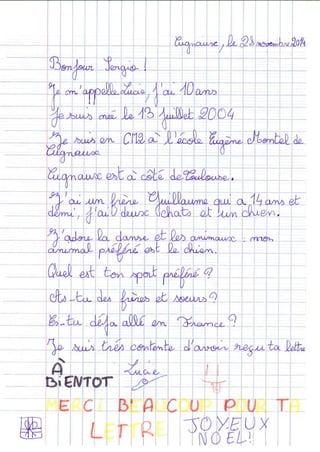 Cugnaux, le 28 novembre 2014
Bonjour Sergio !
Je m'appelle Lucie, j'ai 10 ans
Je suis née le 13 juillet 2004
Je suis en CM2 à l'école Eugène Montel de
Cugnaux
Cugnaux est à côté de Toulouse.
J'ai un frère Guillaume qui a 14 ans et
demi, j'ai deux chats et un chien.
J'adore la danse et les animaux : mon
animal préféré est le chien.
Quel est ton sport préféré ?
As-tu des frères et soeurs ?
Es-tu déjà allé en France ?
Je suis très contente d'avoir reçu ta lettre
À
BiENTOT
Lucie
MERCI BEAUCOUP POUR TA
LETTRE
JOYEUX
NOËL!